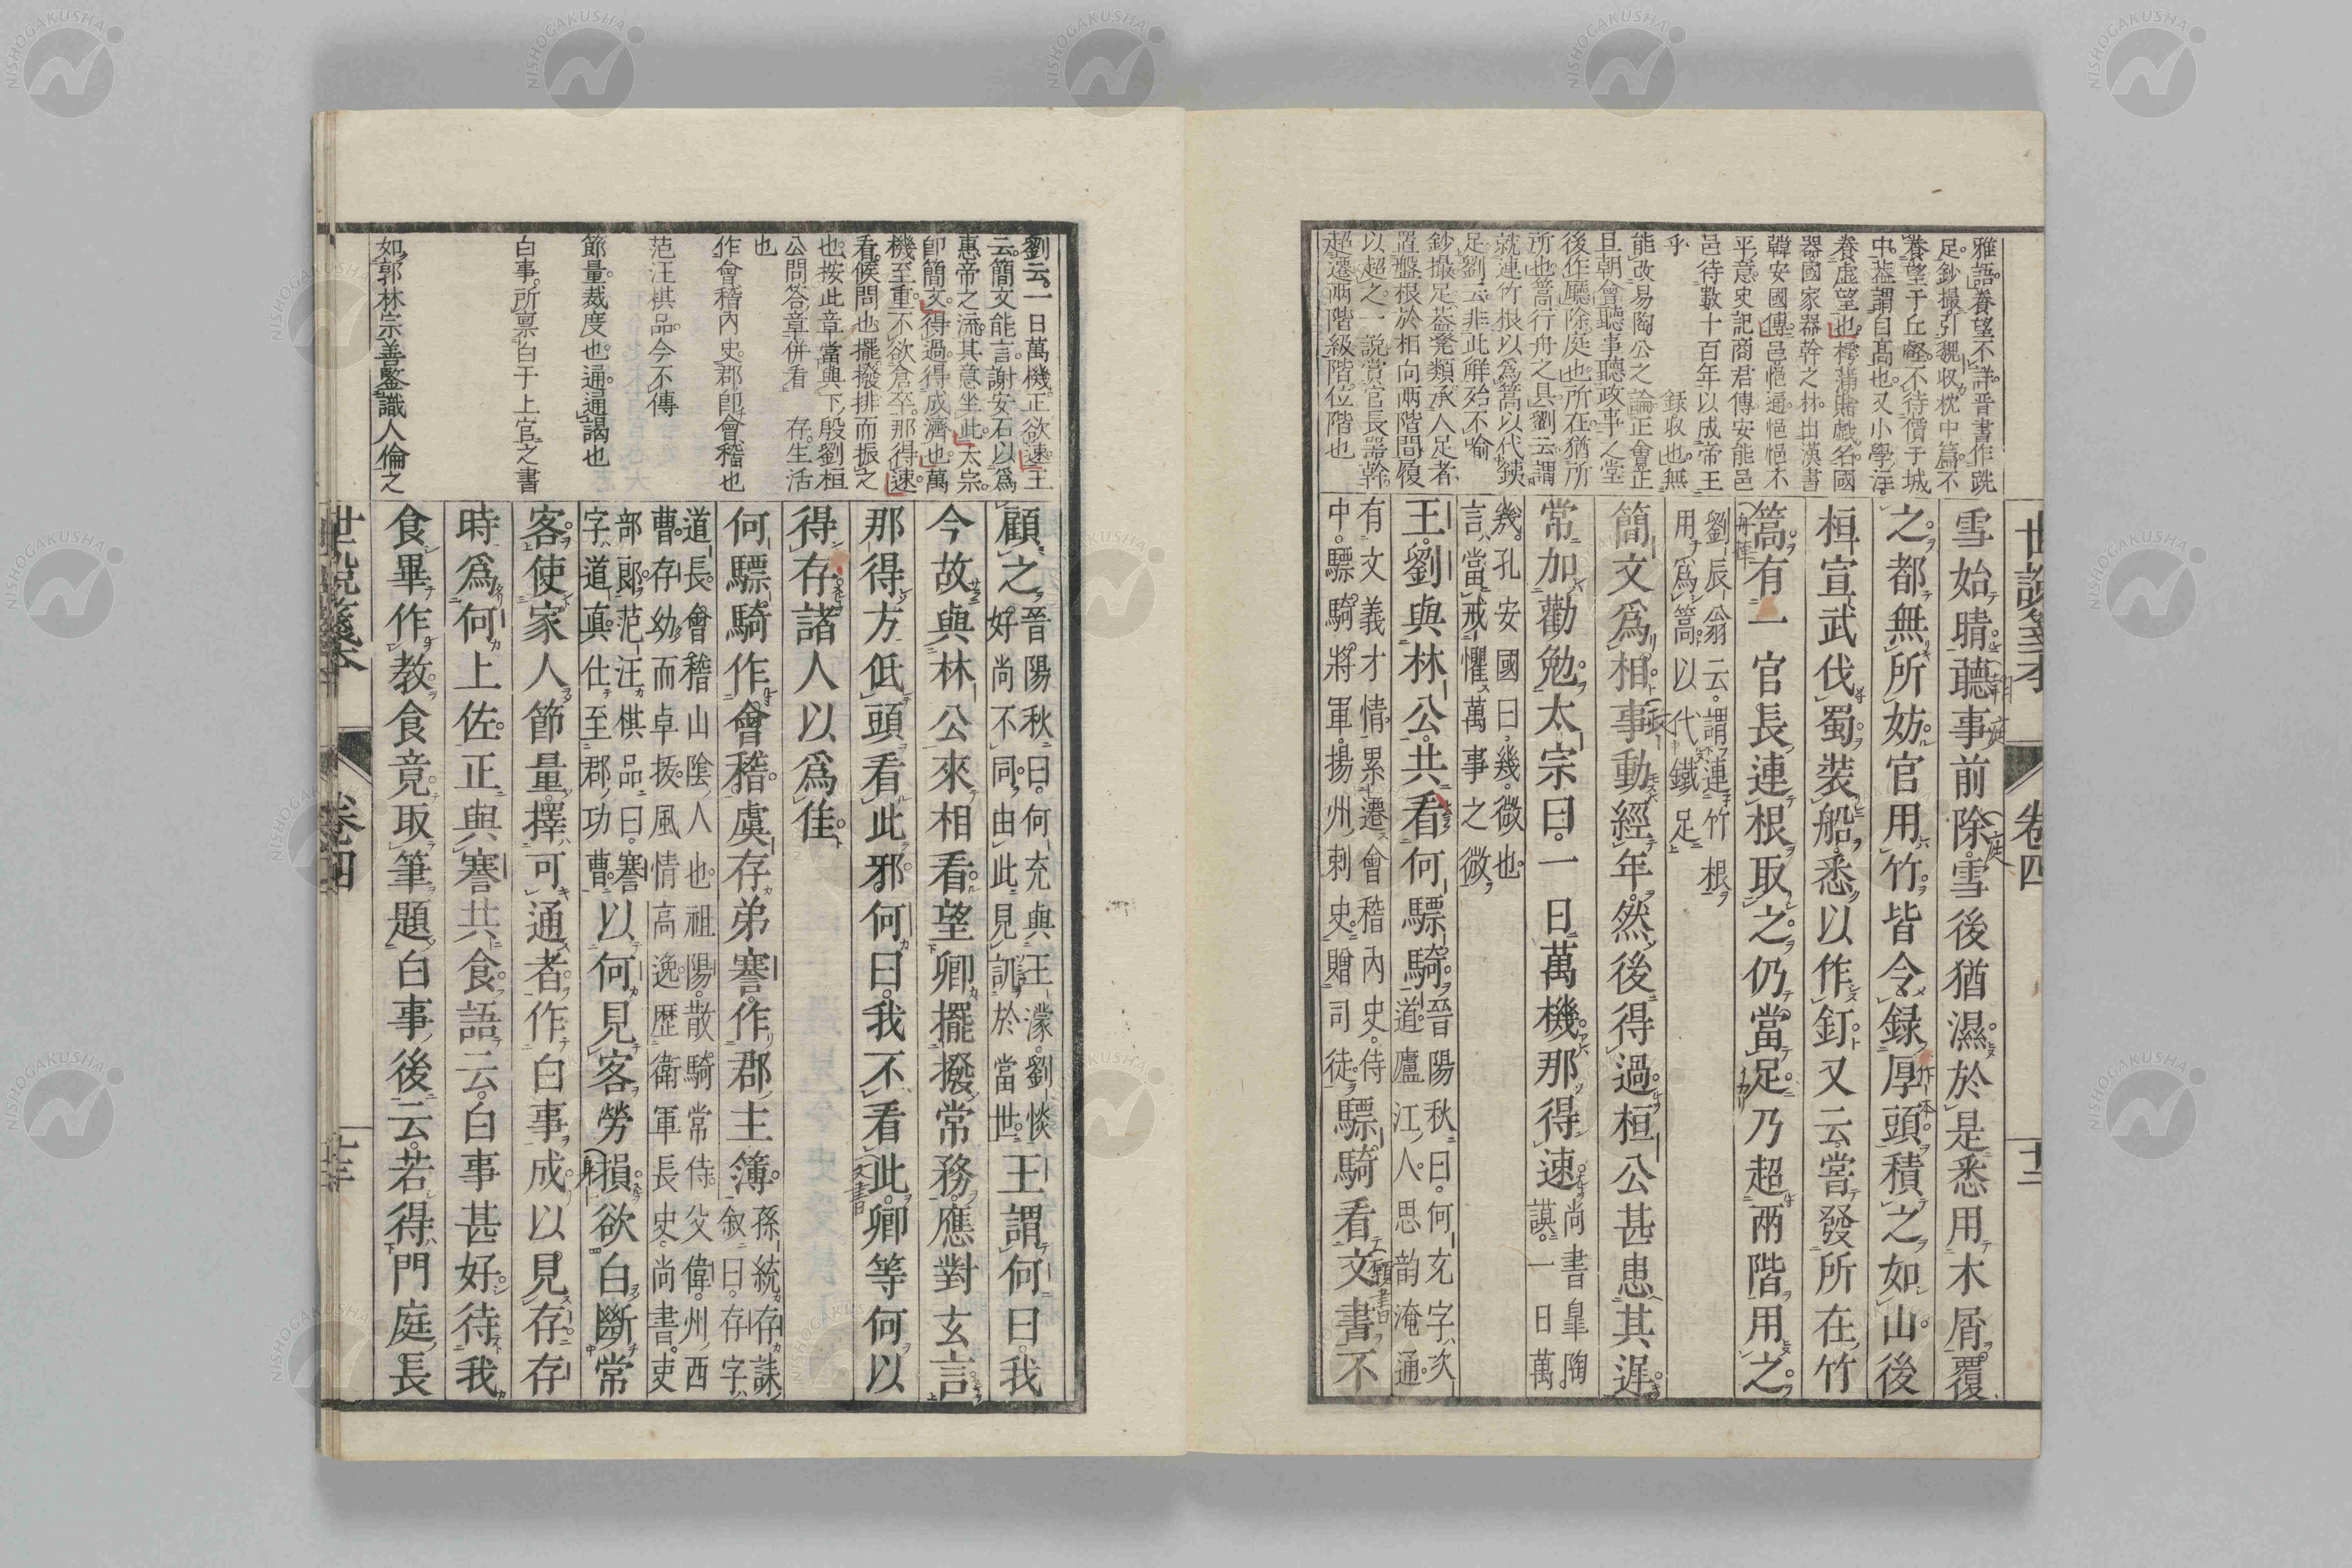 世說箋本
卷四
十二
雅語養望不詳晋書作跣
足鈔撮引親收枕中篇不
養望于丘壑不待價于城
中葢謂自高也又小學注
養虛望也樗蒲賭戲名國
器國家器幹之林出漢書
韓安國傳邑悒通悒悒不
平意史記商君傳安能邑
邑待數十百年以成帝王
乎
錄收也無
能改易陶公之論正會正
旦朝會聽事聽政事之堂
後作廳除庭也所在猶所
所也篙行舟之具劉云謂
就連竹根以爲篙以代鐵
足劉云非此解殆不喻
鈔撮足葢凳類承人足者
置盤根於相向兩階間履
以超之一說賞官長器幹
超遷兩階級階位階也
雪始晴聽事前除雪後猶濕於是悉用木屑覆
之都無所妨官用竹皆令録厚頭積之如山後
桓宣武伐蜀裝船悉以作釘又云嘗發所在竹
篙有一官長連根取之仍當足乃超兩階用之
劉辰翁云謂連竹根
用爲篙以代鐵足
簡文爲相事動經年然後得過桓公甚患其遲
常加勸勉太宗曰一日萬機那得速尚書皐陶
謨一日萬
幾孔安國曰幾微也
言當戒懼萬事之微
王劉與林公共看何驃騎晉陽秋曰何充字次
道廬江人思韵淹通
有文義才情累遷會稽內史侍
中驃騎將軍揚州刺史贈司徒
驃騎看文書不
劉云一日萬機正欲速王
云簡文能言謝安石以爲
惠帝之流其意坐此太宗
卽簡文得過得成濟也萬
機至重不欲倉卒那得速
看候問也擺撥排而振之
也按此章當與下殷劉桓
公問答章併看 存生活
也
作會稽內史郡卽會稽也
范汪棋品今不傳
節量裁度也通通謁也
白事所禀白于上官之書
如郭林宗善鑒識人倫之
顧之晉陽秋曰何充與王濛劉惔
好尚不同由此見譏於當世
王謂何曰我
今故與林公來相看望卿擺撥常務應對玄言
那得方低頭看此邪何曰我不看此卿等何以
得存諸人以爲佳
何驃騎作會稽虞存弟謇作郡主簿孫統存誄
叙曰存字
道長會稽山陰人也祖陽散騎常侍父偉州西
曹存幼而卓拔風情高逸歷衛軍長史尚書吏
部郎范汪棋品曰謇
字道真仕至郡功曹
以何見客勞損欲白斷常
客使家人節量擇可通者作白事成以見存存
時爲何上佐正與謇共食語云白事甚好待我
食畢作教食竟取筆題白事後云若得門庭長
世說箋本
卷四